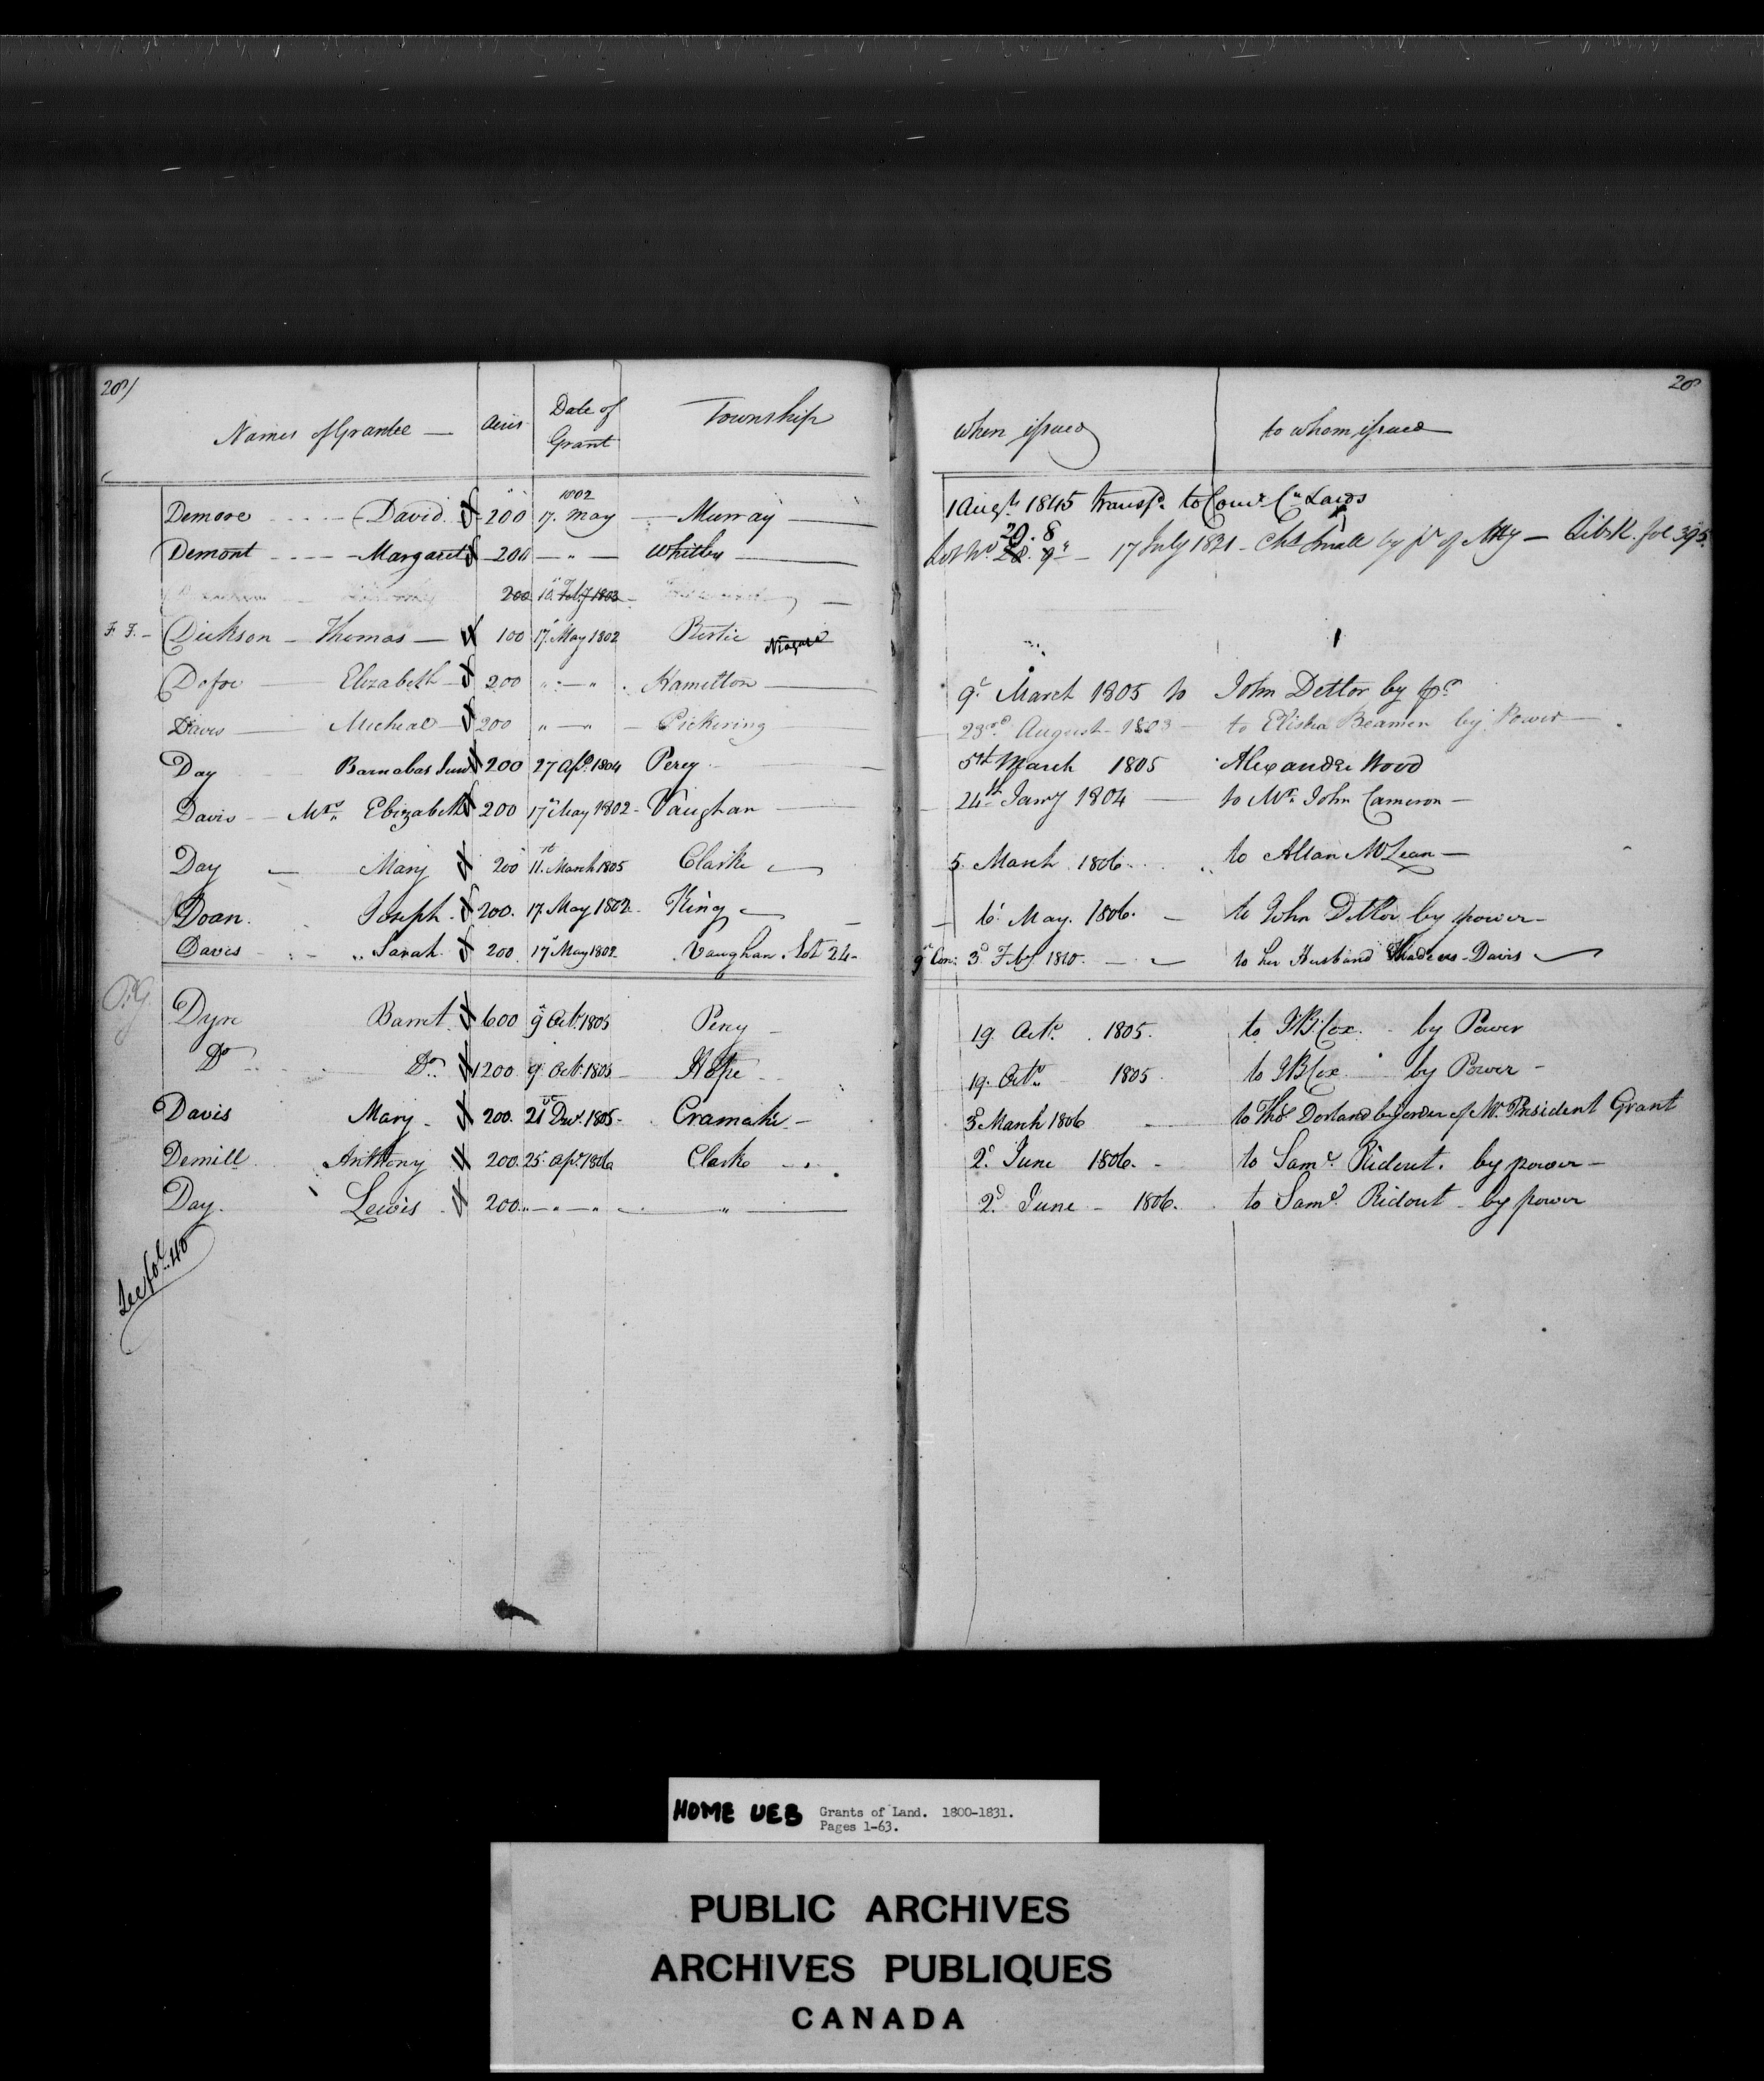 28/ 28
Names of Grantee — Acres Date of Grant Township when issued to whom issued
Demore David 200 17. May 1802 Murray 1 Augt. 1845 Transfd. to Comr. Cn. Lands
Demont Margaret 200 — " — Whitby Lot No. 20. 8 17 July 1821 - Chs. Small by pr. of Atty — Lib. K. fol 395.
200 10. Feby 1803
F. F. — Dickson — Thomas — 100 17. May 1802 Bertie Niagara
Defoe Elizabeth 200 " — " Hamilton 9. March 1805 to John Dettor by pr.
Davis Micheal 200 " — " Pickering 23rd. August 1803 to Elisha Beamen by Power
Day Barnabas Junr 200 27 Apl. 1804 Percy 5th March 1805 Alexander Wood
Davis — Mrs. Elizabeth 200 17 May 1802 - Vaughan 24th Jany 1804 — to Mr. John Cameron —
Day — Mary 200 11. March 1805 Clarke 5 March 1806 to Allan McLean —
Doan. Joseph. 200. 17. May 1802 King 6. May. 1806. — to John Dettor by power —
Davis Sarah. 200 17 May 1802 Vaughan. Lot 24 - 9 Con: 3d. Feby. 1810. to her Husband Thadeus Davis
Dyre Barret. 600 9 Octr. 1805 Percy — 19. Octr. 1805. to J.B. Cox. by Power
Do Do. 1200. 9. Octr. 1805 Hope 19. Octr. 1805 to J B Cox by Power —
Davis Mary. 200. 21 Decr. 1805 - Cramahe — 3d March 1806 to Thos Dorland by order of Mr. President Grant
Demill Anthony 200. 25. Apl. 1806 Clarke 2d. June 1806. - to Saml. Ridout. by power —
Day. Lewis. 200. " — " — " " 2d. June - 1806. to Saml. Ridout - by power
See fol. 40
HOME UEB Grants of Land. 1800-1831.
Pages 1-63.
PUBLIC ARCHIVES
ARCHIVES PUBLIQUES
CANADA